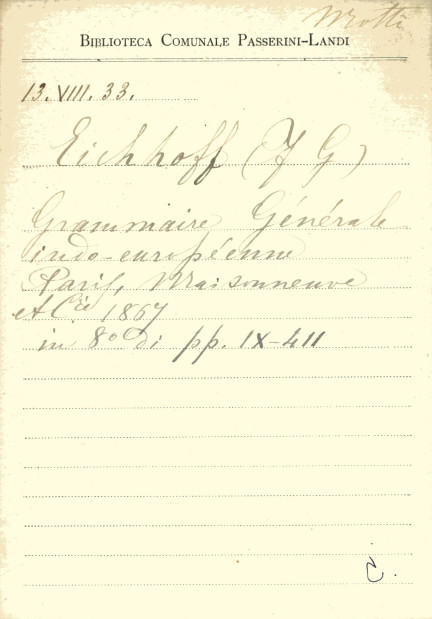 Motti
BIBLIOTECA COMUNALE PASSERINI-LANDI
13. VIII. 33.
Eichhoff (F G)
Grammaire Générale
indo-européenne
Paris, Maisonneuve
et Cie 1867
in 8º di pp. IX-411